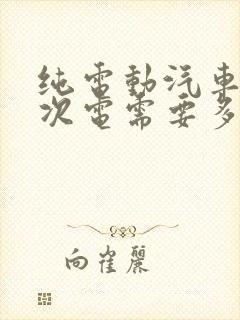 纯電動汽車
次電需要多
向崔麗